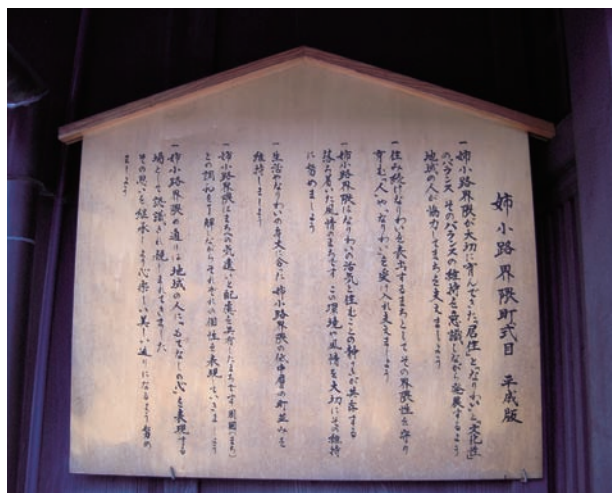 姉小路界隈町式目 平成版
一 姉小路界隈が大切に育んできた「居住」と「なりわい」と「文化性」
のバランス そのバランスの維持を意識しながら発展するよう
地域の人が協力してまちを支えましょう
一 住み続けなりわいを表出するまちとして、その界隈性を守り
育む「人」や「なりわい」を受け入れ支えましょう
一 姉小路界隈はなりわいの活気と住むことの静けさが共存する
落ち着いた風情のまちです この環境や風情を大切にその維持
に努めましょう
一 生活やなりわいの身丈に合った姉小路界隈の低中層の町並みを
維持しましょう
一 姉小路界隈はまちへの気遣いと配慮を共有したまちです 周囲(まち)
との調和を了解しながらそれぞれの個性を表現していきましょう
一 姉小路界隈の通りは地域の人に「もてなしの心」を表現する
場として認識され親しまれてきました
その思いを継承しより心楽しい美しい通りになるよう努め
ましょう